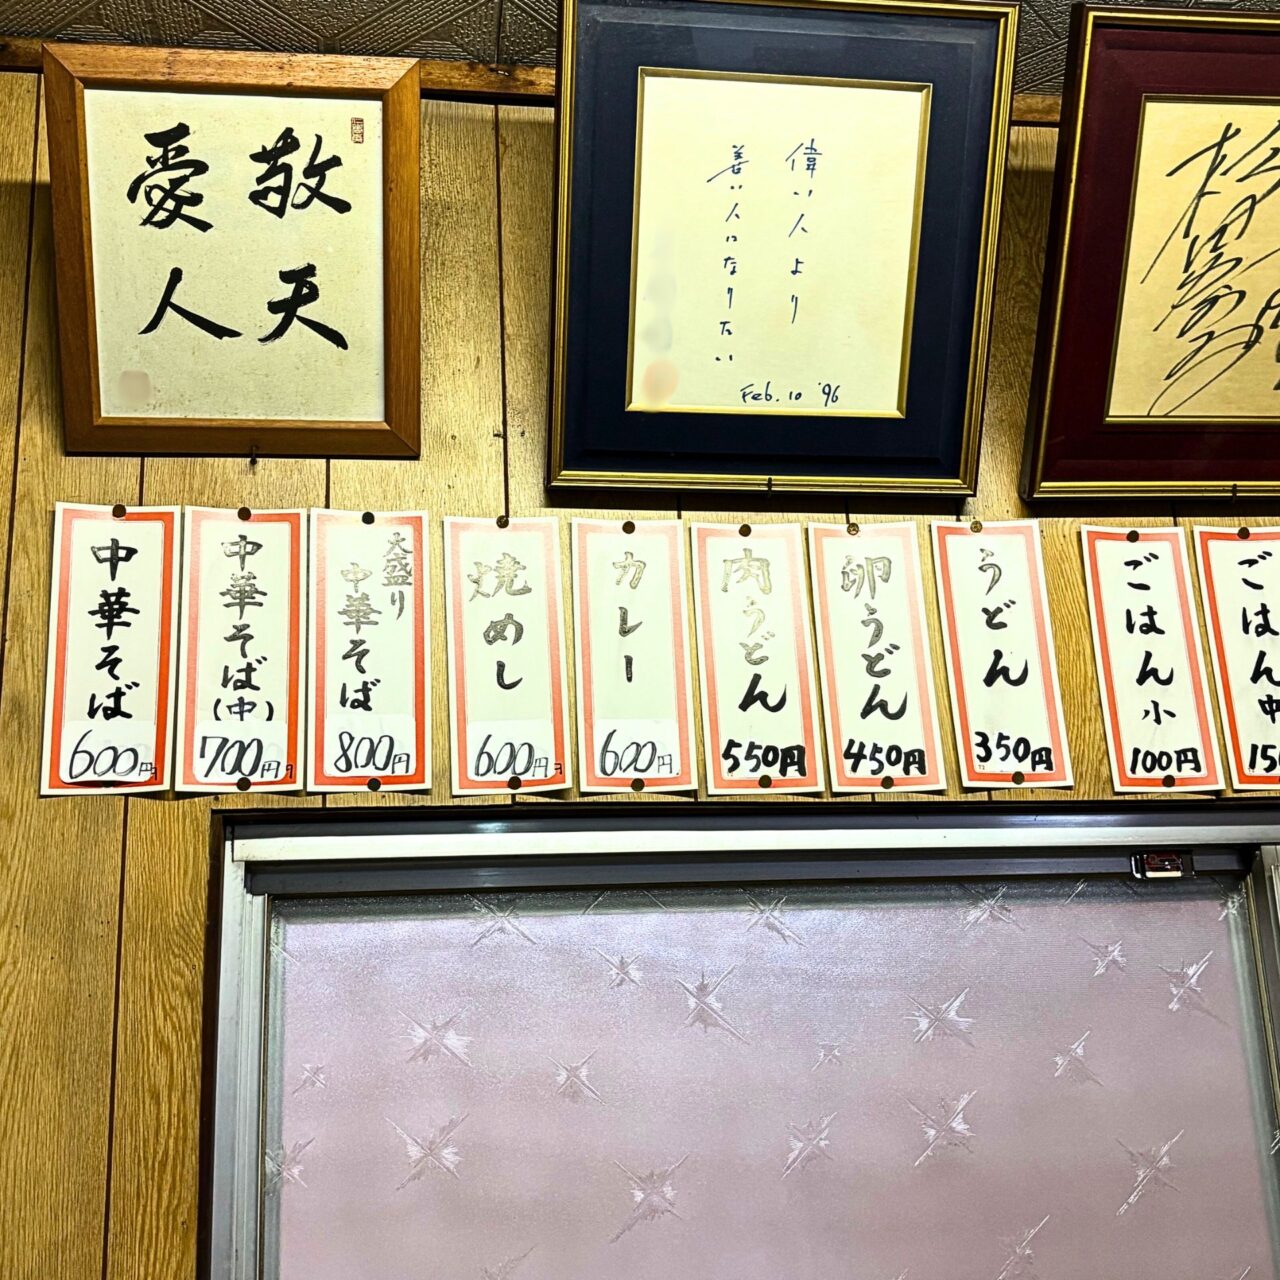 敬天
愛人
偉い人より
善い人になりたい
Feb. 10 '96
中華そば
600円
中華そば(中)
700円
大盛り
中華そば
800円
焼めし
600円
カレー
600円
肉うどん
550円
卵うどん
450円
うどん
350円
ごはん小
100円
ごはん中